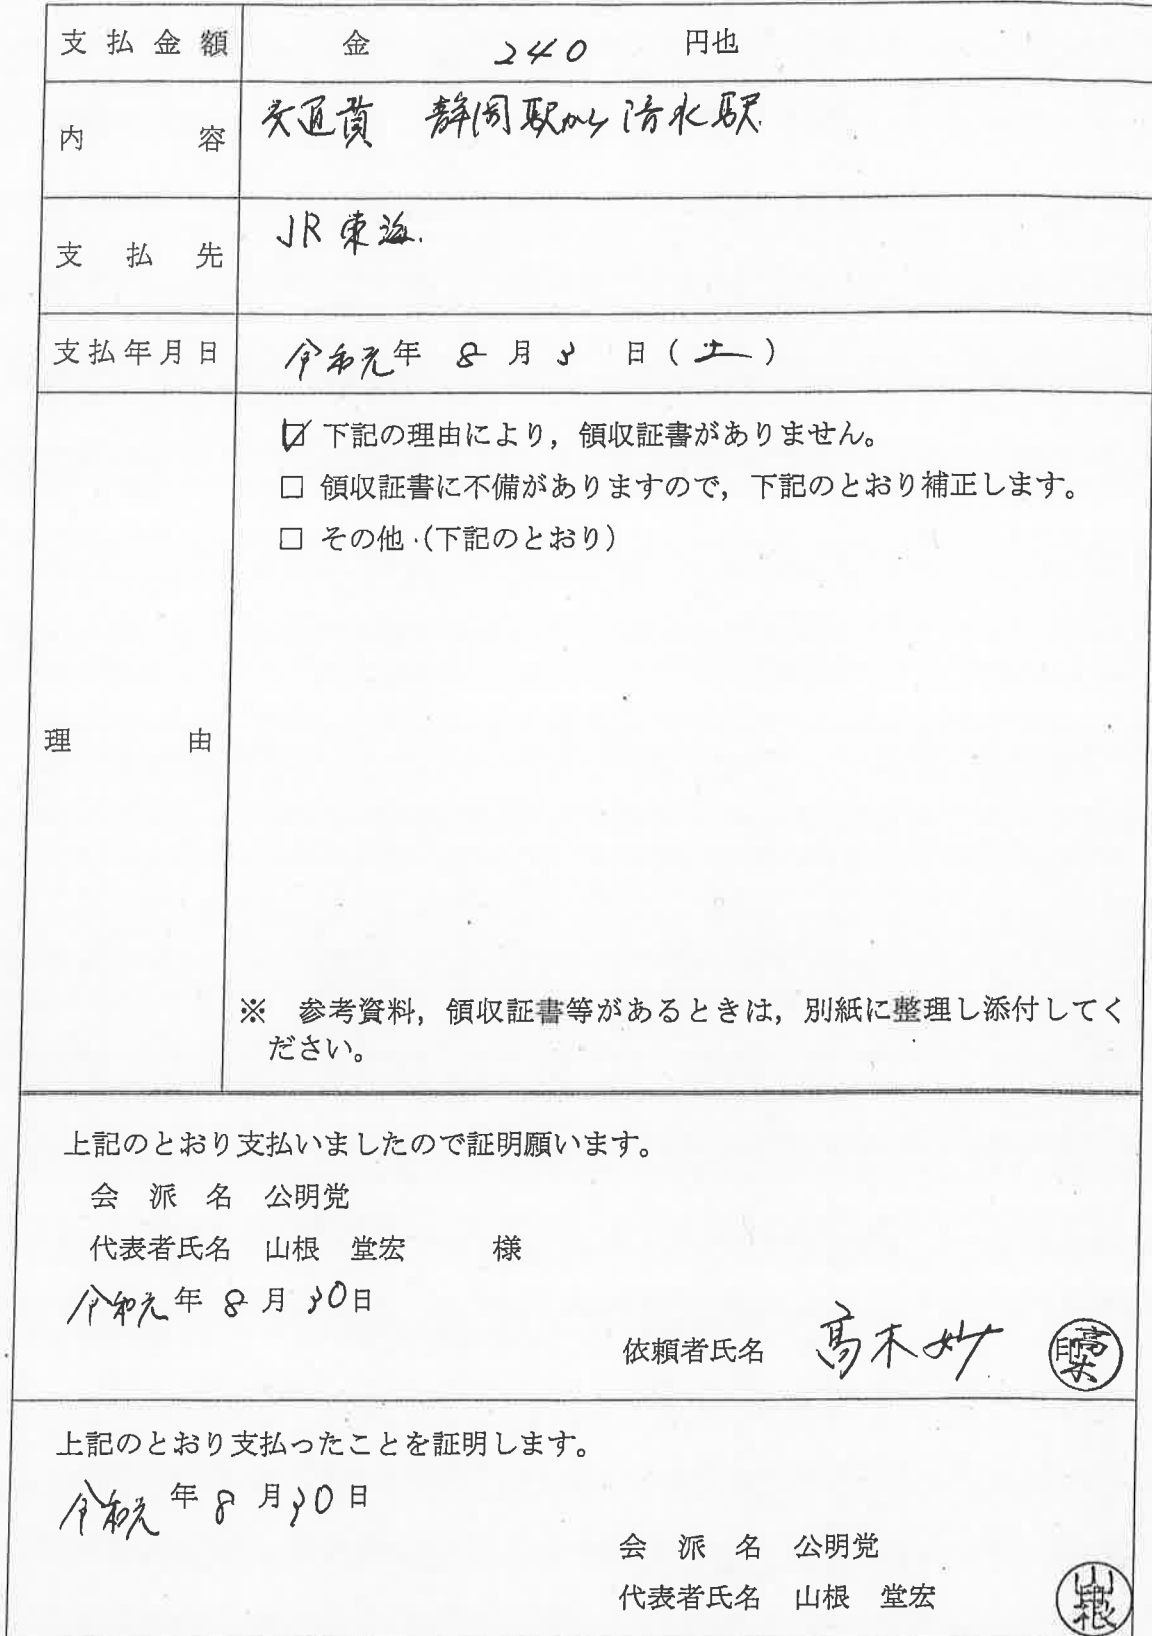 支払金額 金 240 円也
内容 交通費 静岡駅から清水駅
支払先 JR東海.
支払年月日 令和元年 8月3日(土)
☑ 下記の理由により，領収証書がありません。
□ 領収証書に不備がありますので，下記のとおり補正します。
□ その他（下記のとおり）
理由
※ 参考資料，領収証書等があるときは，別紙に整理し添付してく
ださい。
上記のとおり支払いましたので証明願います。
会派名 公明党
代表者氏名 山根 堂宏 様
令和元年8月30日
依頼者氏名 髙木妙 髙木印
上記のとおり支払ったことを証明します。
令和元年8月30日
会派名 公明党
代表者氏名 山根 堂宏 山根印